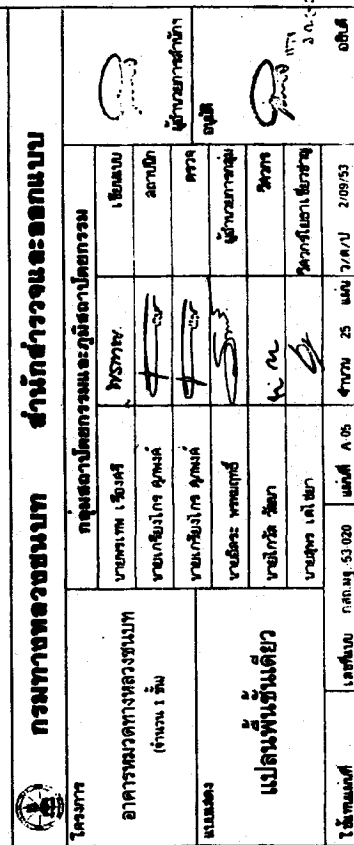 กรมทางหลวงชนบท สำนักสำรวจและออกแบบ
โครงการ
อาคารหมวดทางหลวงชนบท
(จำนวน 1 ชั้น)
แบบแสดง
แปลนพื้นชั้นเดียว
กลุ่มสถาปัตยกรรมและภูมิสถาปัตยกรรม
นายพรเทพ เรืองศรี เขียนแบบ
นายเกรียงไกร ศุภพงค์ สถาปนิก
นายเกรียงไกร ศุภพงค์ ตรวจ
นายอิสระ พรหมฤทธิ์ ผู้อำนวยการกลุ่ม
นายโกวิล วัฒนา วิศวกร
นายสุพร เตโชยา วิศวกรโยธาเชี่ยวชาญ
ผู้อำนวยการสำนักฯ
อนุมัติ
อธิบดี
ใช้แทนแผ่นที่ เลขที่แบบ กสถ.มฐ. 53-020 แผ่นที่ A-05 จำนวน 25 แผ่น ว/ด/ป 2/09/53